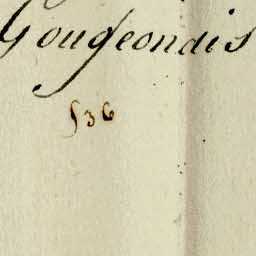 Gougeondis
536